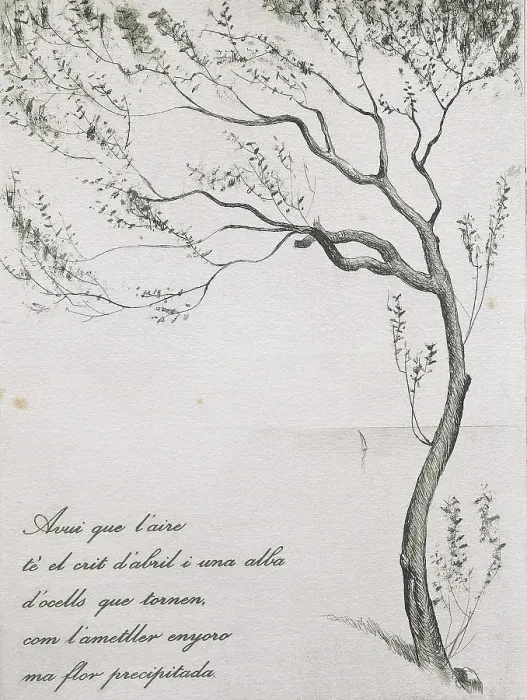 Avui que l'aire
té el crit d'abril i una alba
d'ocells que tornen,
com l'ametller enyoro
ma flor precipitada.